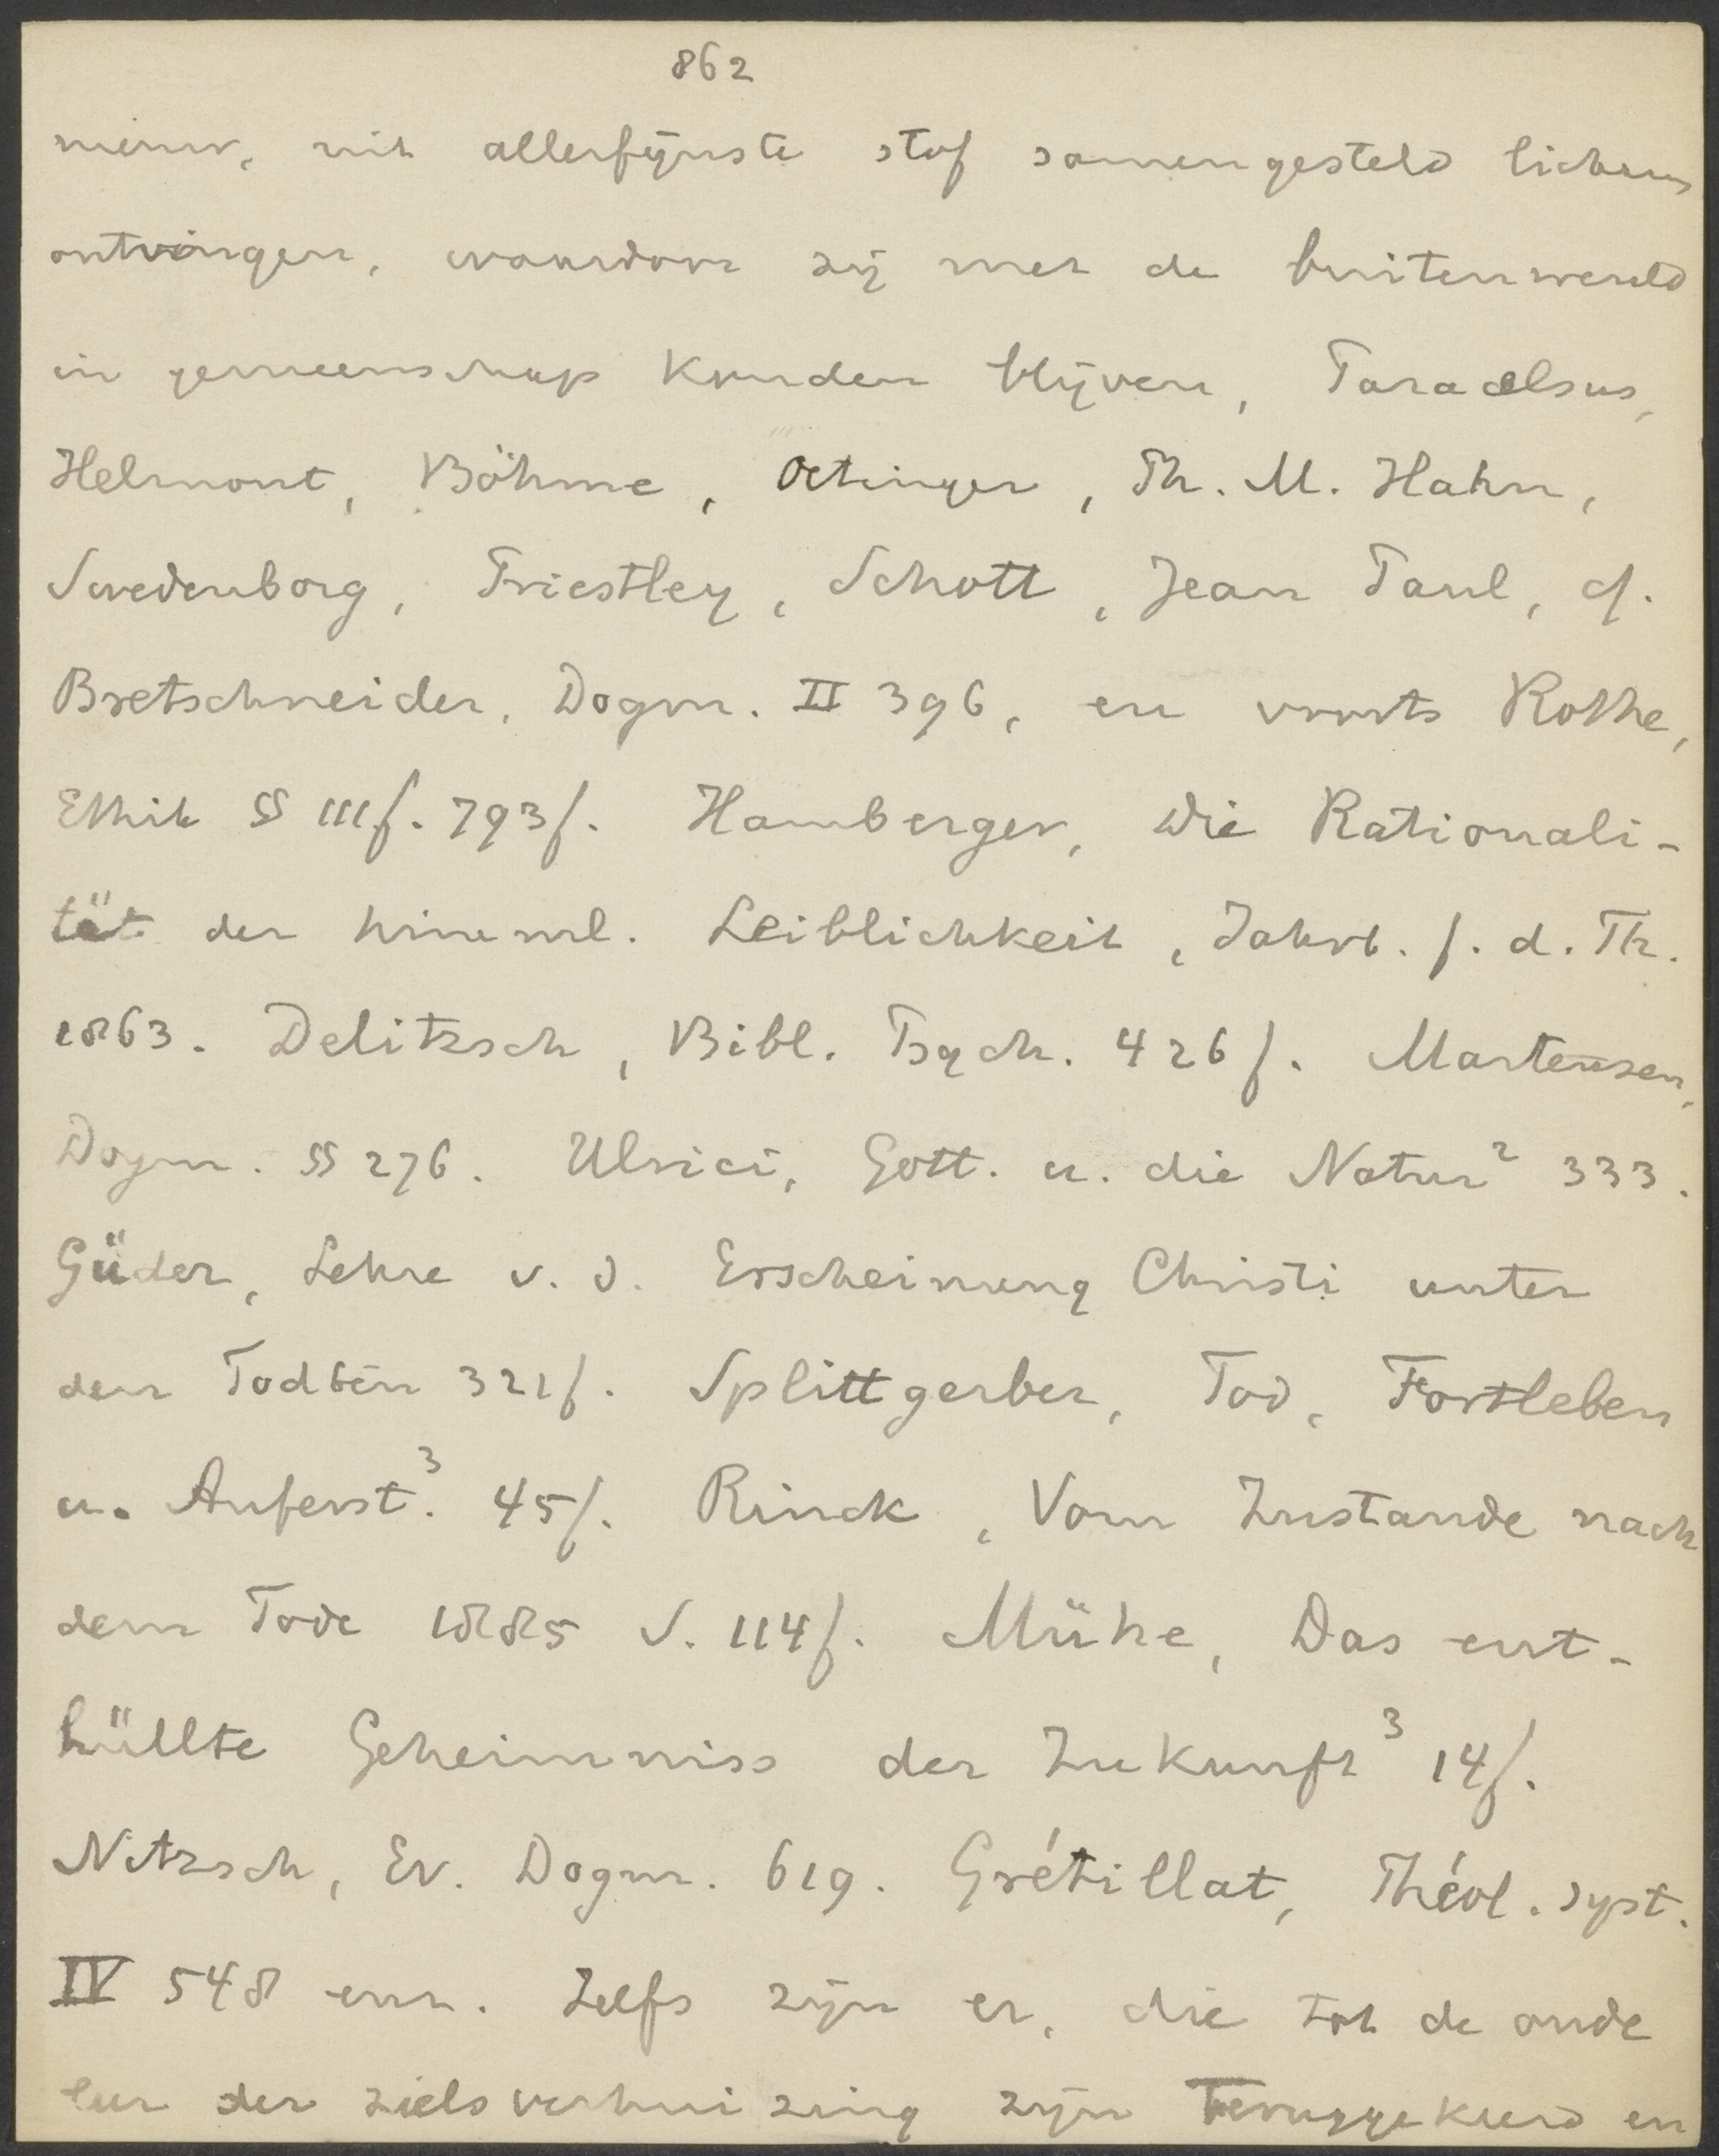 862
nieuw, uit allerfijnste stof samengesteld lichaam
ontvingen, waardoor zij met de buitenwereld
in gemeenschap konden blijven, Paracelsus,
Helmont, Böhme, Oetinger, Ph. M. Hahn,
Swedenborg, Priestley, Schott, Jean Paul, cf.
Bretschneider, Dogm. II 396, en voorts Rothe,
Ethik §§ 111f. 793f. Hamberger, Die Rationali-
tät der himml. Leiblichkeit, Jahrb. f. d. Th.
1863. Delitzsch, Bibl. Psych. 426f. Martensen,
Dogm. §§ 276. Ulrici, Gott. u. die Natur² 333.
Güder, Lehre v. d. Erscheinung Christi unter
den Todten 321f. Splittgerber, Tod, Fortleben
u. Auferst.³ 45f. Rinck, Vom Zustande nach
dem Tode 1885 S. 114f. Mühe, Das ent-
hüllte Geheimniss der Zukunft³ 14f.
Nitzsch, Ev. Dogm. 619. Grétillat, Théol. syst.
IV 548 enz. Zelfs zijn er, die tot de oude
leer der zielsverhuizing zijn teruggekeerd en